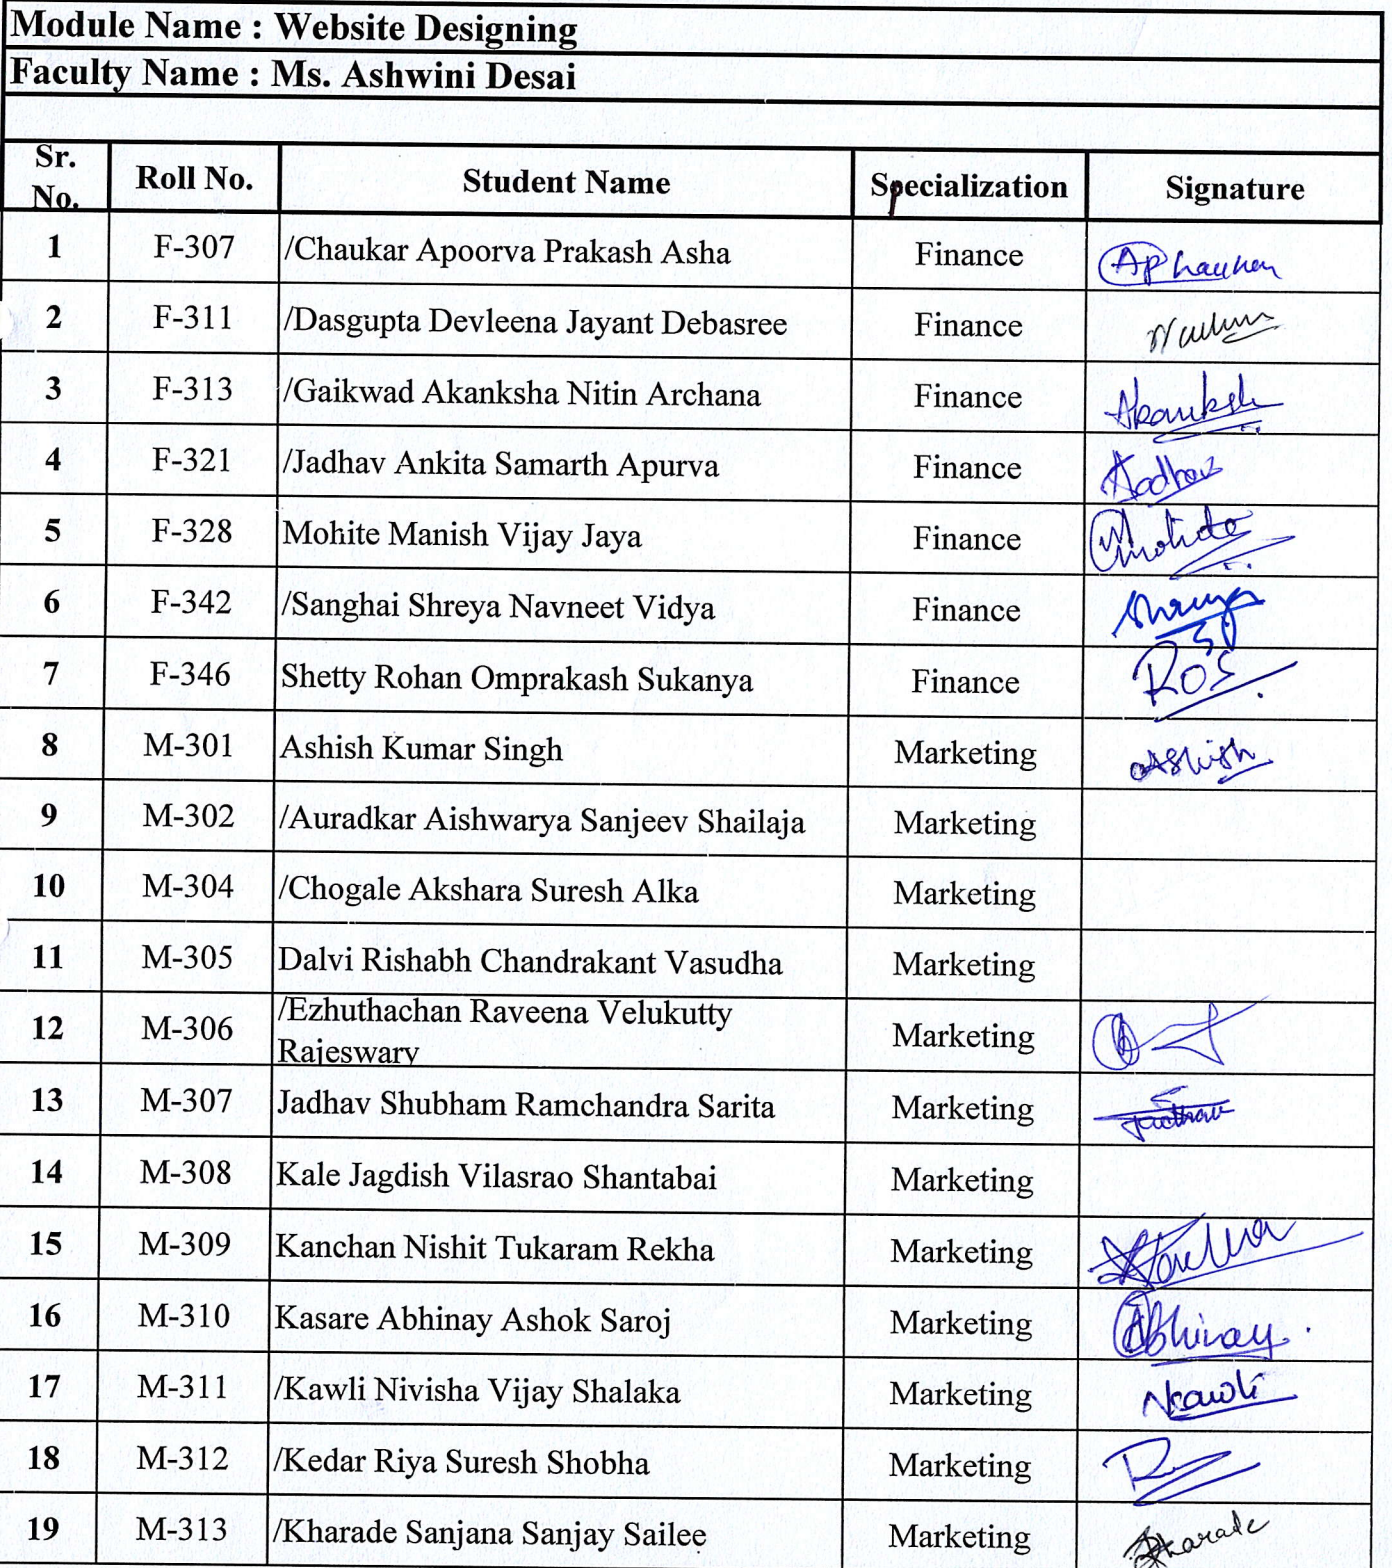 Module Name : Website Designing
Faculty Name : Ms. Ashwini Desai
Sr. No. Roll No. Student Name Specialization Signature
1 F-307 /Chaukar Apoorva Prakash Asha Finance
2 F-311 /Dasgupta Devleena Jayant Debasree Finance
3 F-313 /Gaikwad Akanksha Nitin Archana Finance Akanksha
4 F-321 /Jadhav Ankita Samarth Apurva Finance AJadhav
5 F-328 Mohite Manish Vijay Jaya Finance Mohite
6 F-342 /Sanghai Shreya Navneet Vidya Finance Shreya
7 F-346 Shetty Rohan Omprakash Sukanya Finance ROS
8 M-301 Ashish Kumar Singh Marketing Ashish
9 M-302 /Auradkar Aishwarya Sanjeev Shailaja Marketing
10 M-304 /Chogale Akshara Suresh Alka Marketing
11 M-305 Dalvi Rishabh Chandrakant Vasudha Marketing
12 M-306 /Ezhuthachan Raveena Velukutty Rajeswary Marketing
13 M-307 Jadhav Shubham Ramchandra Sarita Marketing Jadhav
14 M-308 Kale Jagdish Vilasrao Shantabai Marketing
15 M-309 Kanchan Nishit Tukaram Rekha Marketing
16 M-310 Kasare Abhinay Ashok Saroj Marketing Abhinay
17 M-311 /Kawli Nivisha Vijay Shalaka Marketing Nkawli
18 M-312 /Kedar Riya Suresh Shobha Marketing
19 M-313 /Kharade Sanjana Sanjay Sailee Marketing Skharade